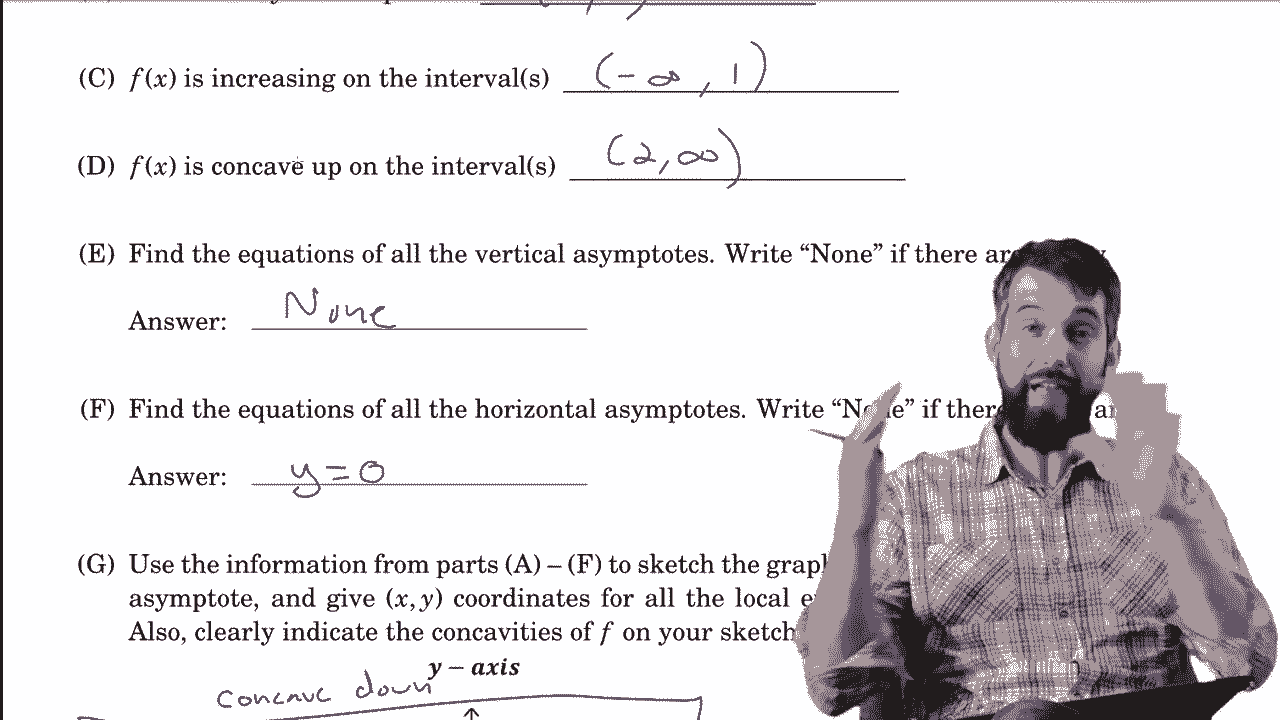 (C) f(x) is increasing on the interval(s) (-∞, 1)
(D) f(x) is concave up on the interval(s) (2, ∞)
(E) Find the equations of all the vertical asymptotes. Write “None” if there
Answer: None
(F) Find the equations of all the horizontal asymptotes. Write “None” if
Answer: y=0
(G) Use the information from parts (A) – (F) to sketch the
asymptote, and give (x, y) coordinates for all the local
Also, clearly indicate the concavities of f on your sketch
y – axis
concave down